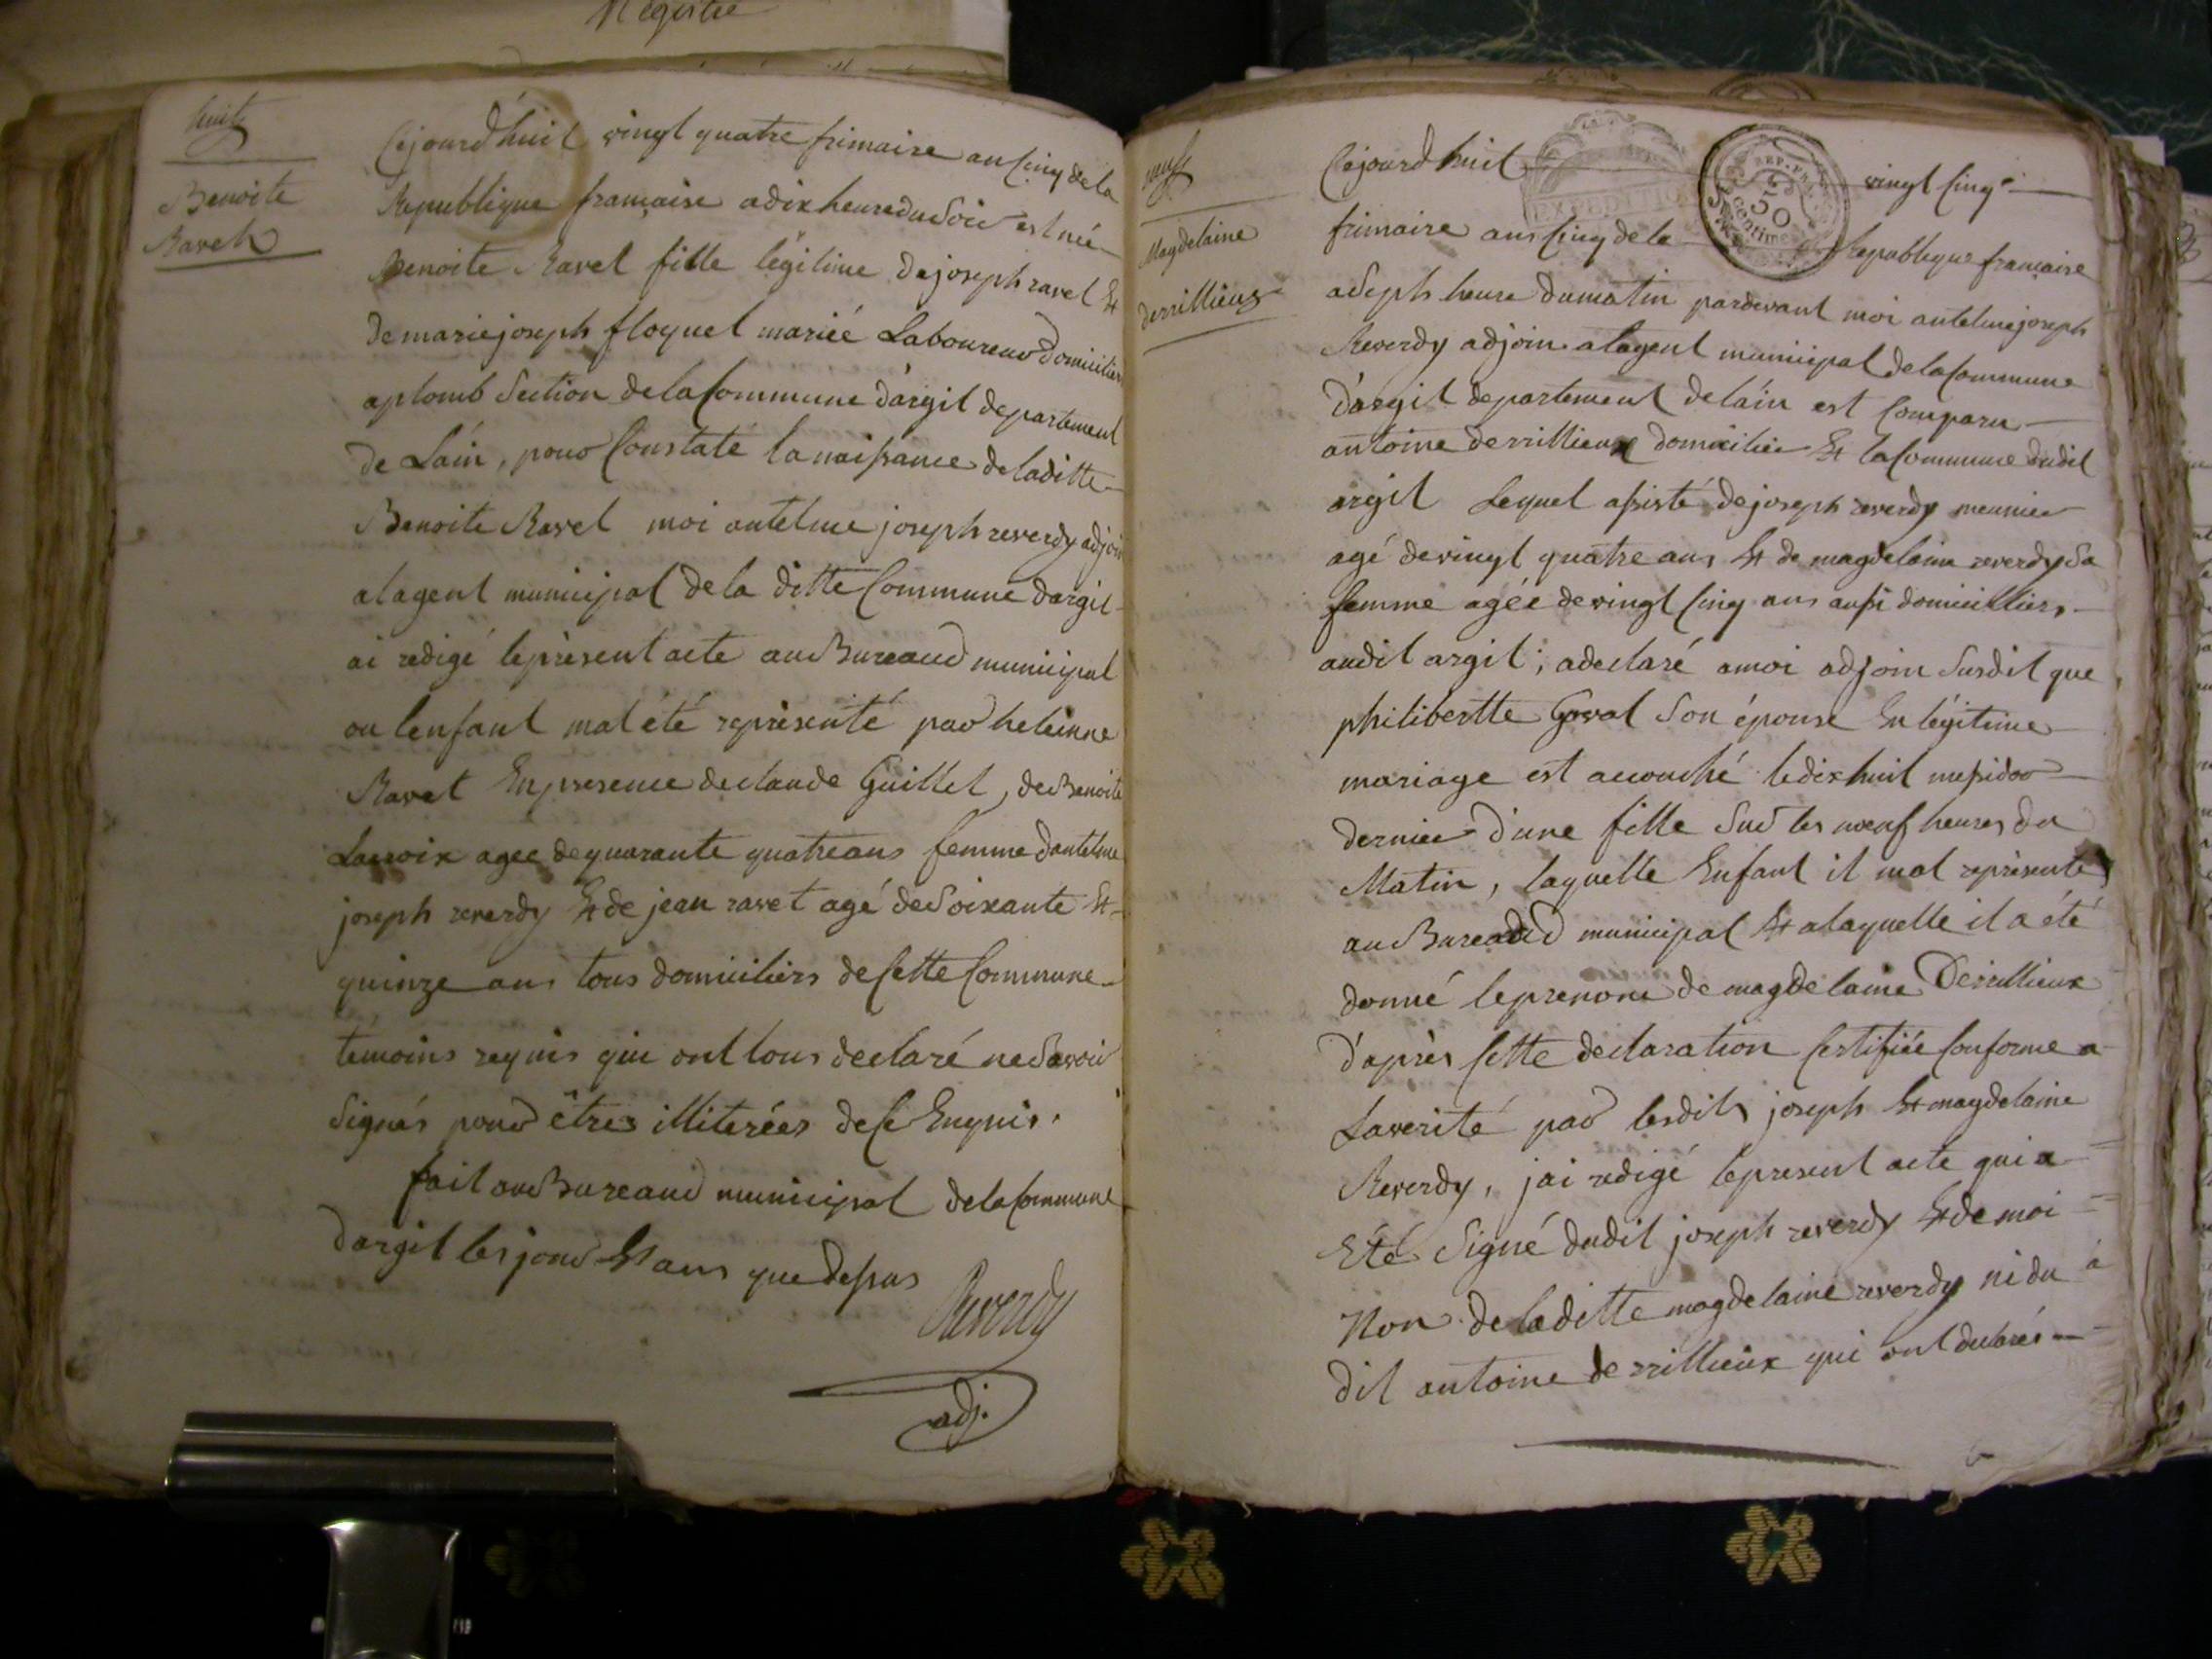 Registre
huit
Benoite
Ravet
Cejourd'huit vingt quatre frimaire an cinq de la
Republique francaise a dix heure du soir est née
Benoite Ravet fille légitime de joseph ravet Et
de marie joseph floquet mariée Laboureur domiciliers
aplomb Section de la Commune d'argit departement
de Lain, pour Constaté la naissance de laditte
Benoite Ravet moi antelme joseph reverdy adjoin
alagent municipal de la ditte Commune dargit
ai redigé le présent acte au Bureaud municipal
ou lenfant mat été représenté par heleinne
Ravet En presence de claude Guillet, de Benoite
Lacroix agee de quarante quatre ans femme dantelme
joseph reverdy Et de jean ravet agé de Soixante Et
quinze ans tous domiciliers de Cette Commune
témoins requis qui ont tous declaré ne Savoir
Signés pour êtres illiterées de Ce Enquis.
fait au Bureaud municipal de la Commune
dargit les jour Et ans que dessus
Reverdy
adj.
neuf
Magdelaine
derrillieux
Cejourd huit vingt cinq
REP. FRA.
50
centime
EXPEDITION
frimaire ans Cinq de la Republique francaise
a Seph heure du matin pardevant moi antelme joseph
Reverdy adjoin alagent municipal de la Commune
d'argit departement de lain est Comparu
antoine derrillieux domicilier Et la Commune dudit
argit Lequel assisté de joseph reverdy meunier
agé de vingt quatre ans Et de magdelaine reverdy Sa
femme agée de vingt Cinq ans aussi domicilliers
audit argit; a declaré a moi adjoin Susdit que
philibertte Goval Son épouse En légitime
mariage est accouché le dix huit messidor
dernier d'une fille Sur les noeuf heures du
Matin, laquelle Enfant il mat réprésenté
au Bureaud municipal Et alaquelle il a été
donné le prenom de magdelaine Derrillieux
d'après Cette declaration Certifiée Conforme a
Laverité par lesdits joseph Et magdelaine
Reverdy, jai redigé le present acte qui a
Eté Signé dudit joseph reverdy Et de moi
Non de laditte magdelaine reverdy ni du a
dit antoine derrillieux qui ont declarés